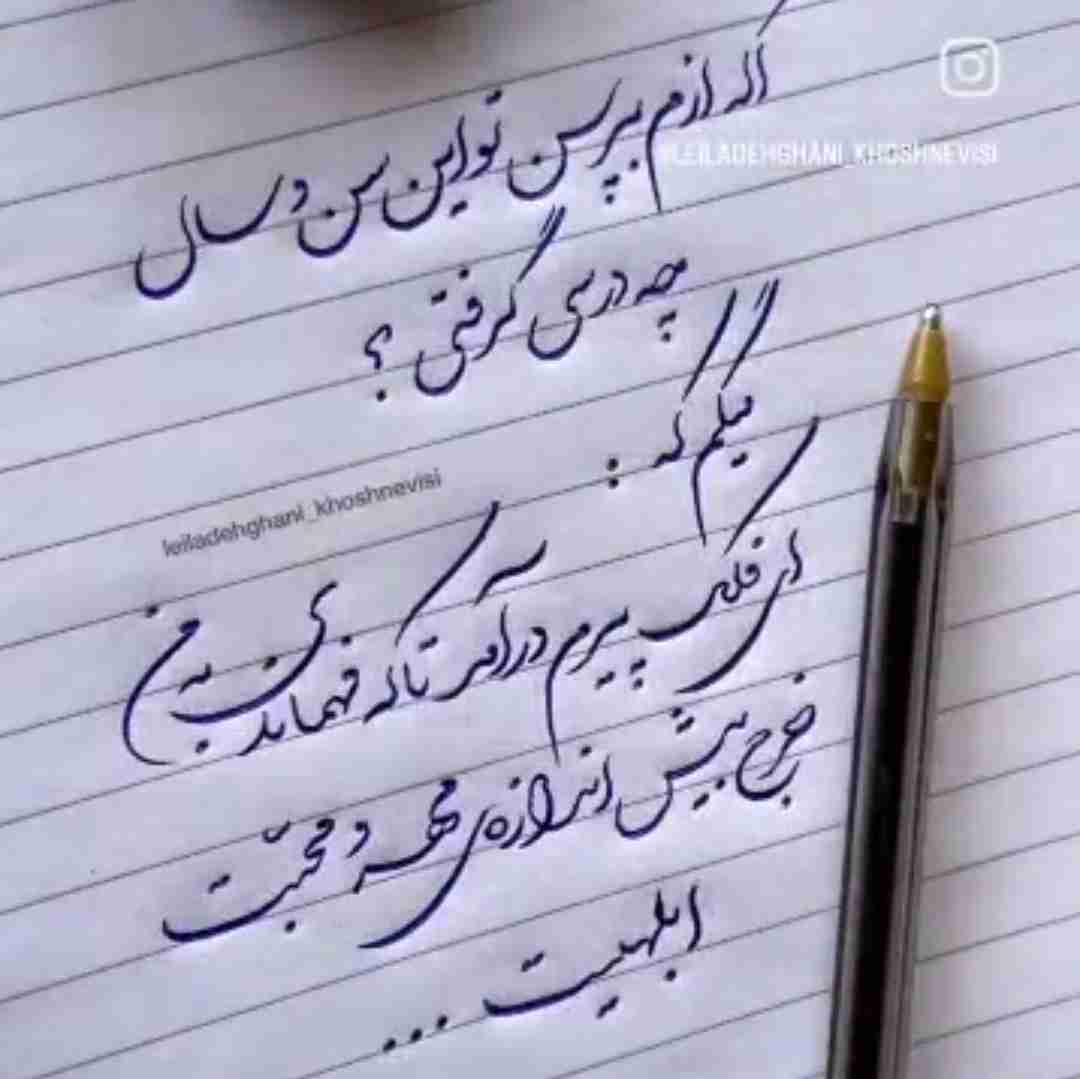 @LEILADEHGHANI_KHOSHNEVISI
اگه ازم بپرسن تو این سن و سال
چه درسی گرفتی ؟
میگم که :
leiladehghani_khoshnevisi
ای فلک پیرم درآمد تا که فهماند به من
خرج بیش اندازه‌ی مهر و محبّت
ابلهیست ...